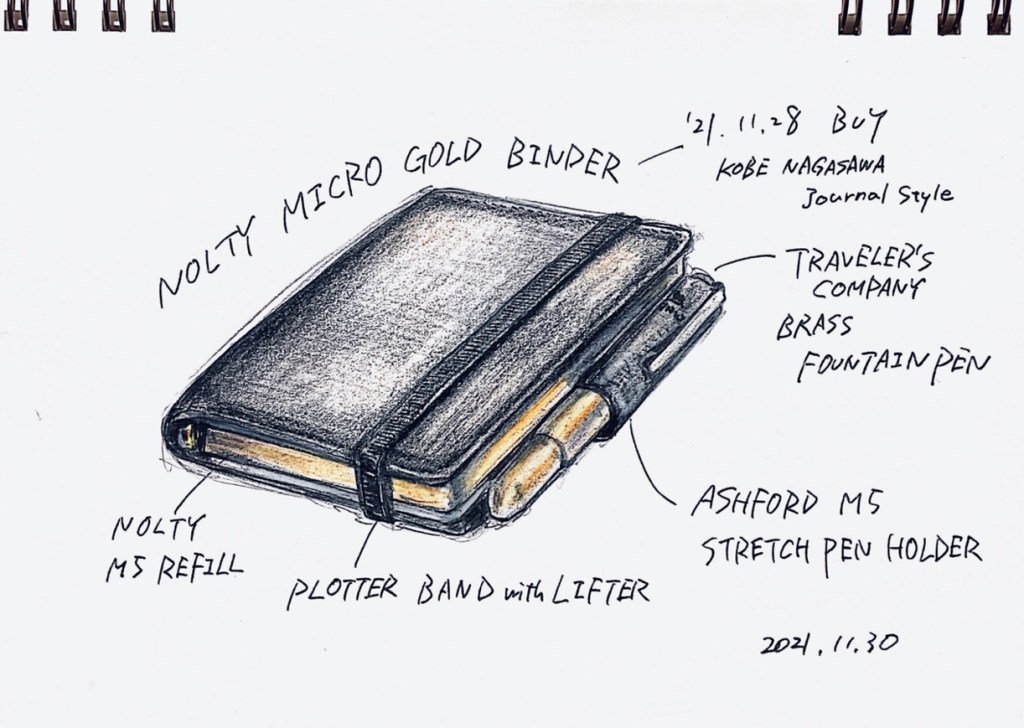 NOLTY MICRO GOLD BINDER
'21.11.28 BUY
KOBE NAGASAWA
Journal Style
TRAVELER'S
COMPANY
BRASS
FOUNTAIN PEN
ASHFORD M5
STRETCH PEN HOLDER
NOLTY
M5 REFILL
PLOTTER BAND with LIFTER
2021.11.30